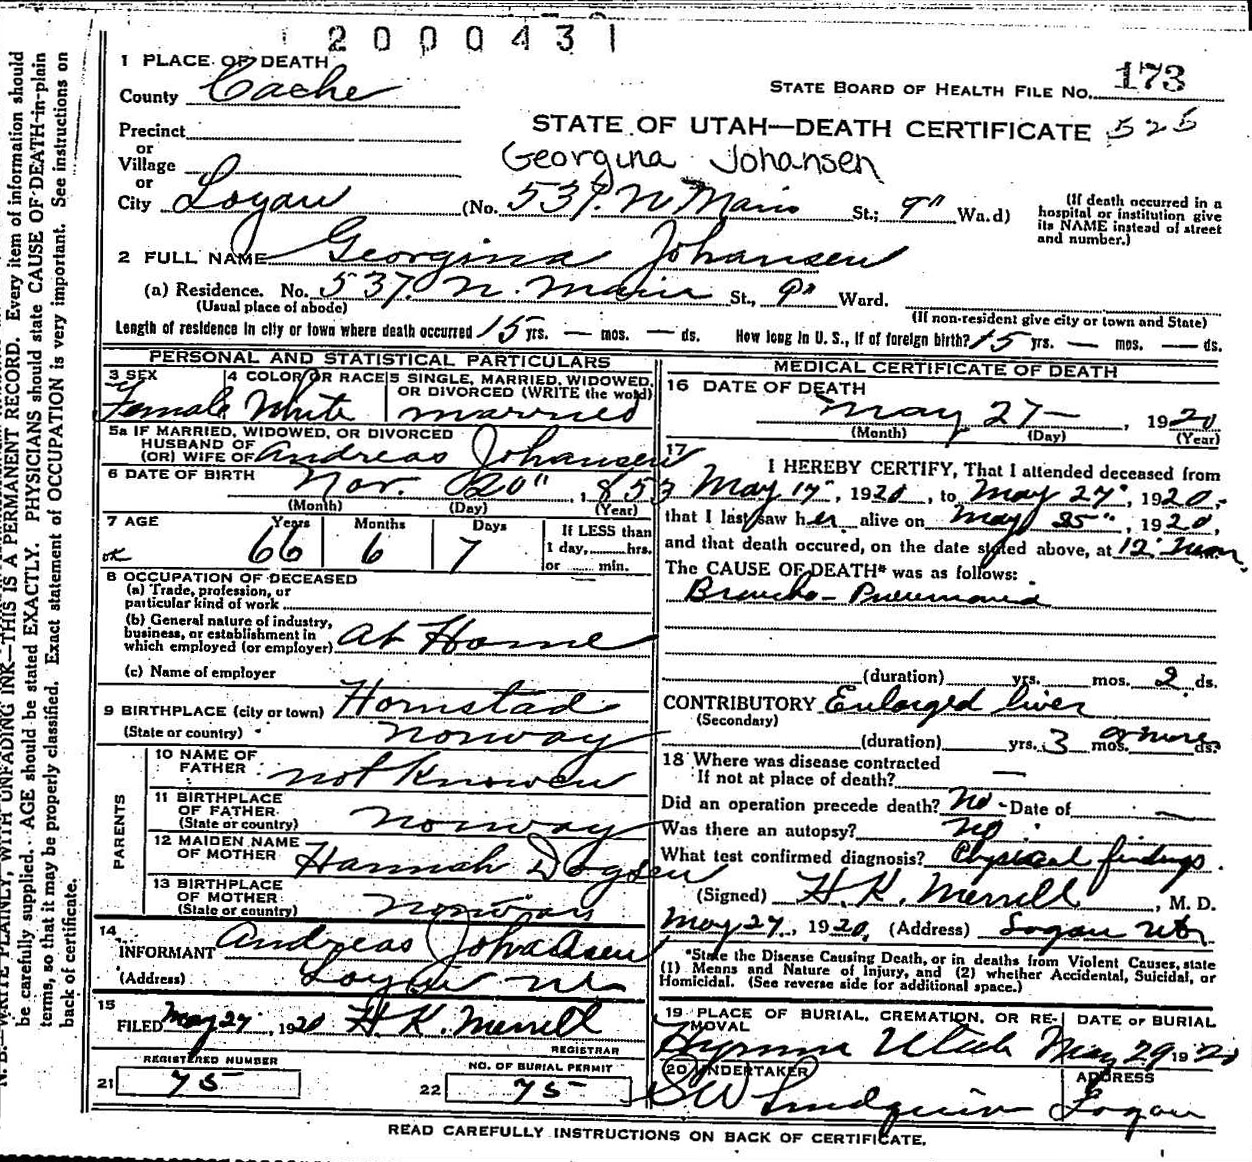 2000431
1 PLACE OF DEATH
County Cache
STATE BOARD OF HEALTH FILE No. 173
Precinct
or
Village
or
City Logan
STATE OF UTAH—DEATH CERTIFICATE 525
Georgina Johansen
(No. 537 N Main St.; 9" Wa.d)
(If death occurred in a
hospital or institution give
its NAME instead of street
and number.)
2 FULL NAME Georgina Johansen
(a) Residence. No. 537 N. Main St., 9" Ward.
(Usual place of abode)
(If non-resident give city or town and State)
Length of residence in city or town where death occurred 15 yrs. — mos. — ds. How long in U. S., if of foreign birth? 15 yrs. — mos. — ds.
PERSONAL AND STATISTICAL PARTICULARS
3 SEX Female
4 COLOR OR RACE White
5 SINGLE, MARRIED, WIDOWED,
OR DIVORCED (WRITE the wold)
married
5a IF MARRIED, WIDOWED, OR DIVORCED
HUSBAND OF
(OR) WIFE OF Andreas Johansen
6 DATE OF BIRTH Nov. 20", 1853
(Month) (Day) (Year)
7 AGE Years Months Days
ok 66 6 7
If LESS than
1 day,........hrs.
or ...... min.
8 OCCUPATION OF DECEASED
(a) Trade, profession, or
particular kind of work
(b) General nature of industry,
business, or establishment in
which employed (or employer) At Home
(c) Name of employer
9 BIRTHPLACE (city or town) Homstad
(State or country) Norway
PARENTS
10 NAME OF
FATHER not knowen
11 BIRTHPLACE
OF FATHER
(State or country) Norway
12 MAIDEN NAME
OF MOTHER Hannah
13 BIRTHPLACE
OF MOTHER
(State or country) Norway
14
INFORMANT Andreas Johansen
(Address) Logan Ut
15
FILED May 27, 1920 H K. Merrill
REGISTRAR
REGISTERED NUMBER
21 75
NO. OF BURIAL PERMIT
22 75
MEDICAL CERTIFICATE OF DEATH
16 DATE OF DEATH
May 27—, 1920
(Month) (Day) (Year)
17
I HEREBY CERTIFY, That I attended deceased from
May 17", 1920, to May 27", 1920,
that I last saw her alive on May 25", 1920,
and that death occured, on the date stated above, at 12 noon
The CAUSE OF DEATH* was as follows:
Broncho-Pneumonia
(duration) yrs. mos. 2 ds.
CONTRIBUTORY Enlarged liver
(Secondary)
(duration) yrs. 3 mos. or more ds.
18 Where was disease contracted
If not at place of death? —
Did an operation precede death? No - Date of —
Was there an autopsy? No
What test confirmed diagnosis? Physical findings.
(Signed) H. K. Merrill, M. D.
May 27, 1920, (Address) Logan Utr
*State the Disease Causing Death, or in deaths from Violent Causes, state
(1) Means and Nature of Injury, and (2) whether Accidental, Suicidal, or
Homicidal. (See reverse side for additional space.)
19 PLACE OF BURIAL, CREMATION, OR RE-
MOVAL
Hyrum Utah
DATE OF BURIAL
May 29 1920
20 UNDERTAKER
Lindquist
ADDRESS
Logan
READ CAREFULLY INSTRUCTIONS ON BACK OF CERTIFICATE.
N. B.—WRITE PLAINLY, WITH UNFADING INK—THIS IS A PERMANENT RECORD. Every item of information should
be carefully supplied. AGE should be stated EXACTLY. PHYSICIANS should state CAUSE OF DEATH in plain
terms, so that it may be properly classified. Exact statement of OCCUPATION is very important. See instructions on
back of certificate.